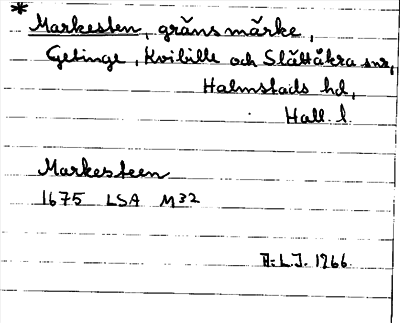 * Markesten, gränsmärke,
Getinge, Kvibille och Slättåkra snr,
Halmstads hd,
Hall. l.
Markesteen
1675 LSA M32
A:L.J. 1966